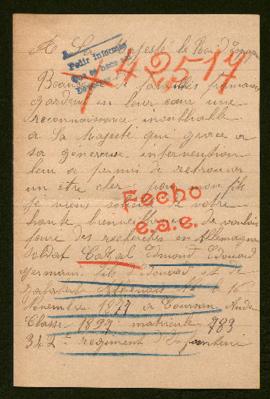 A Sa Majesté le Roi d'Espagne
Pedir Informes
42517
Beaucoup de familles françaises
gardent en leur cœur une
reconnaissance inoubliable
à Sa Majesté qui grâce a
sa généreuse intervention
a permis de retrouver
un être cher pour mon fils
je viens de votre
haute bienveillance de vouloir
faire des recherches en Allemagne
Fecho
e.a.e.
Soldat Edmond Edouard
germain fils Edouard et de
né le 16
Novembre 1877 a Coursan Aude
Classe 1897 matricule 983
342 regiment d'infanterie